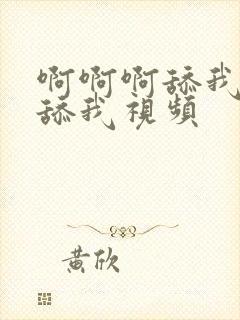 啊啊啊舔我
舔我 視頻
黃欣